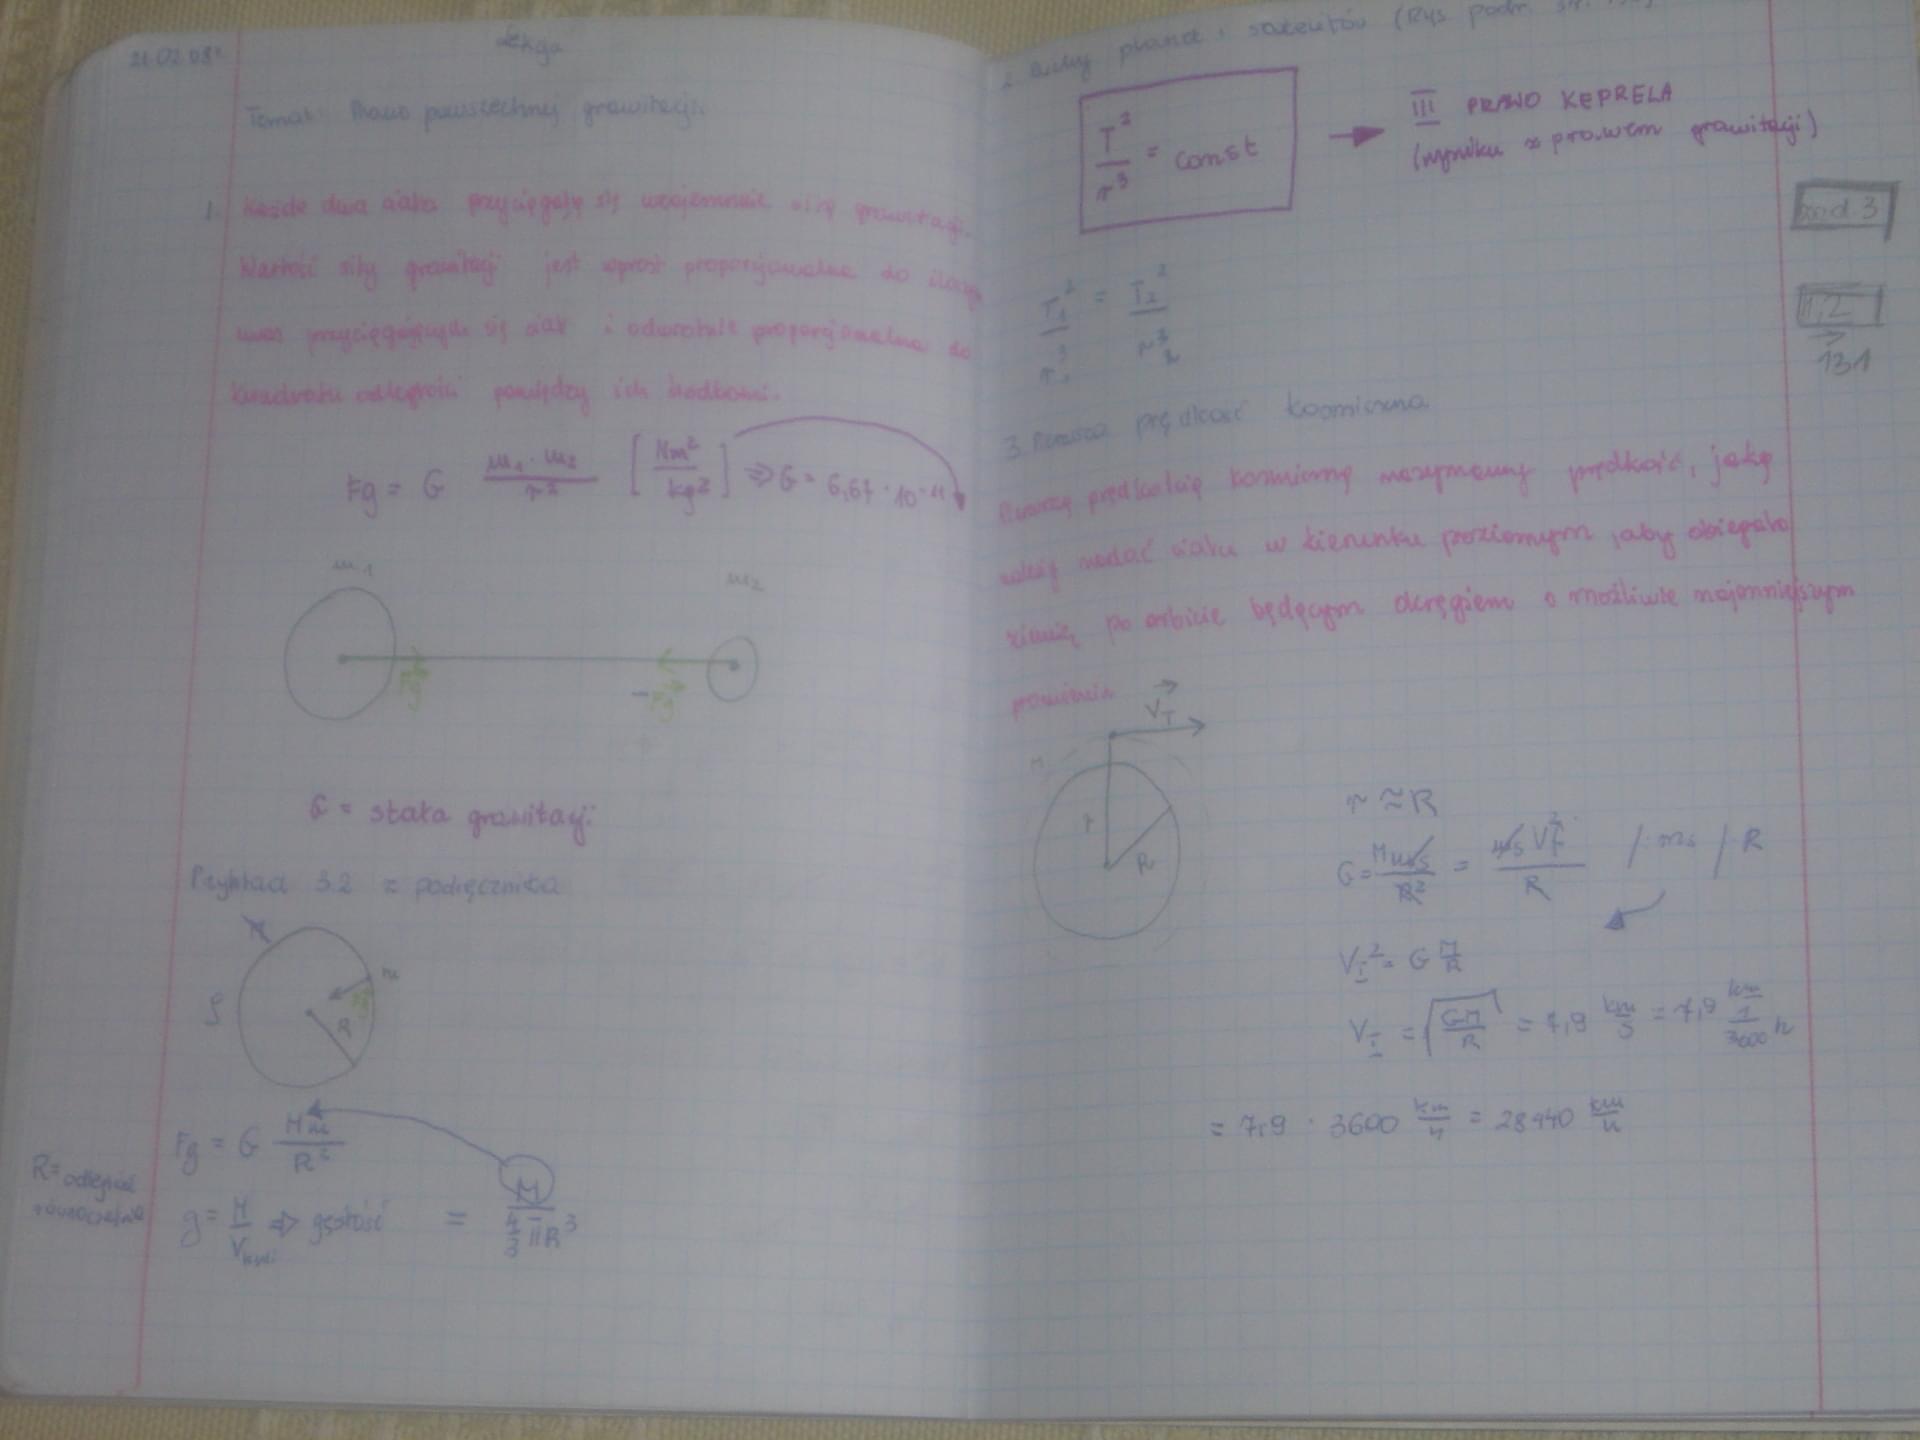 21.02.08r.
Lekcja
Temat: Prawo powszechnej grawitacji.
1. Każde dwa ciała przyciągają się wzajemnie siłą grawitacji.
Wartość siły grawitacji jest wprost proporcjonalna do iloczy
mas przyciągających się ciał i odwrotnie proporcjonalna do
kwadratu odległości pomiędzy ich środkami.
Fg = G m₁·m₂/r² [Nm²/kg²] ⇒ G = 6,67·10⁻¹¹
m₁ m₂
Fg -Fg
G = stała grawitacji
Przykład 3.2 z podręcznika
M
m
ρ
Fg
R
Fg = G Mm/R²
R = odległość
ρ = M/Vkuli ⇒ gęstość = M/(4/3 ΠR³)
2. Ruchy planet i satelitów (Rys podr. str.
T²/r³ = const → III PRAWO KEPRELA
(wynika z prawem grawitacji)
zad. 3
T₁²/r₁³ = T₂²/r₂³
1,2
131
3. Pierwsza prędkość kosmiczna
Pierwszą prędkością kosmiczną nazywamy prędkość, jaką
należy nadać ciału w kierunku poziomym, aby obiegało
ziemię po orbicie będącym okręgiem o możliwie najmniejszym
promieniu.
V_I
M
r
R
r ≈ R
G = Mms/R² = msV_I²/R /: ms / R
V_I² = G M/R
V_I = √(GM/R) = 7,9 km/s = 7,9 km/(1/3600 h)
= 7,9 · 3600 km/h = 28440 km/h